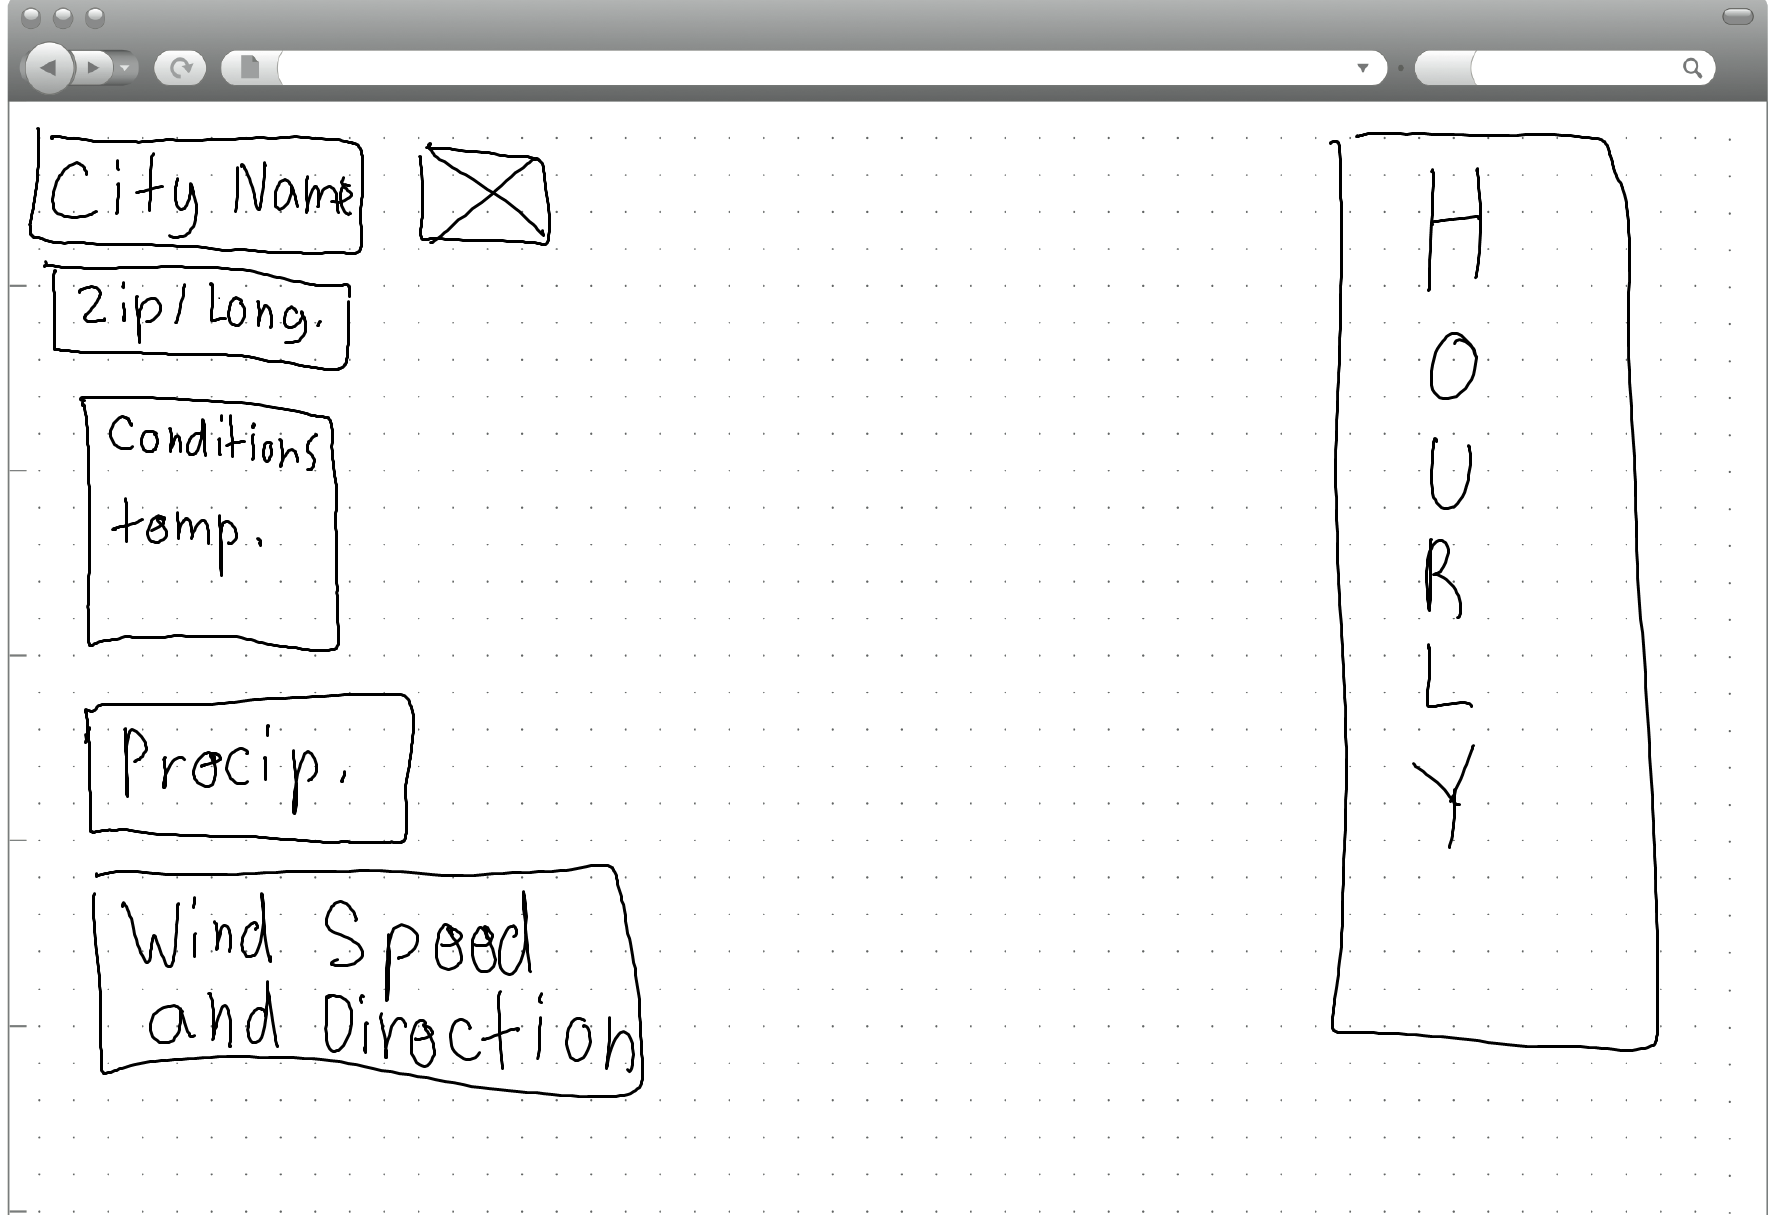 City Name
Zip/Long.
Conditions
temp.
Precip.
Wind Speed
and Direction
HOURLY